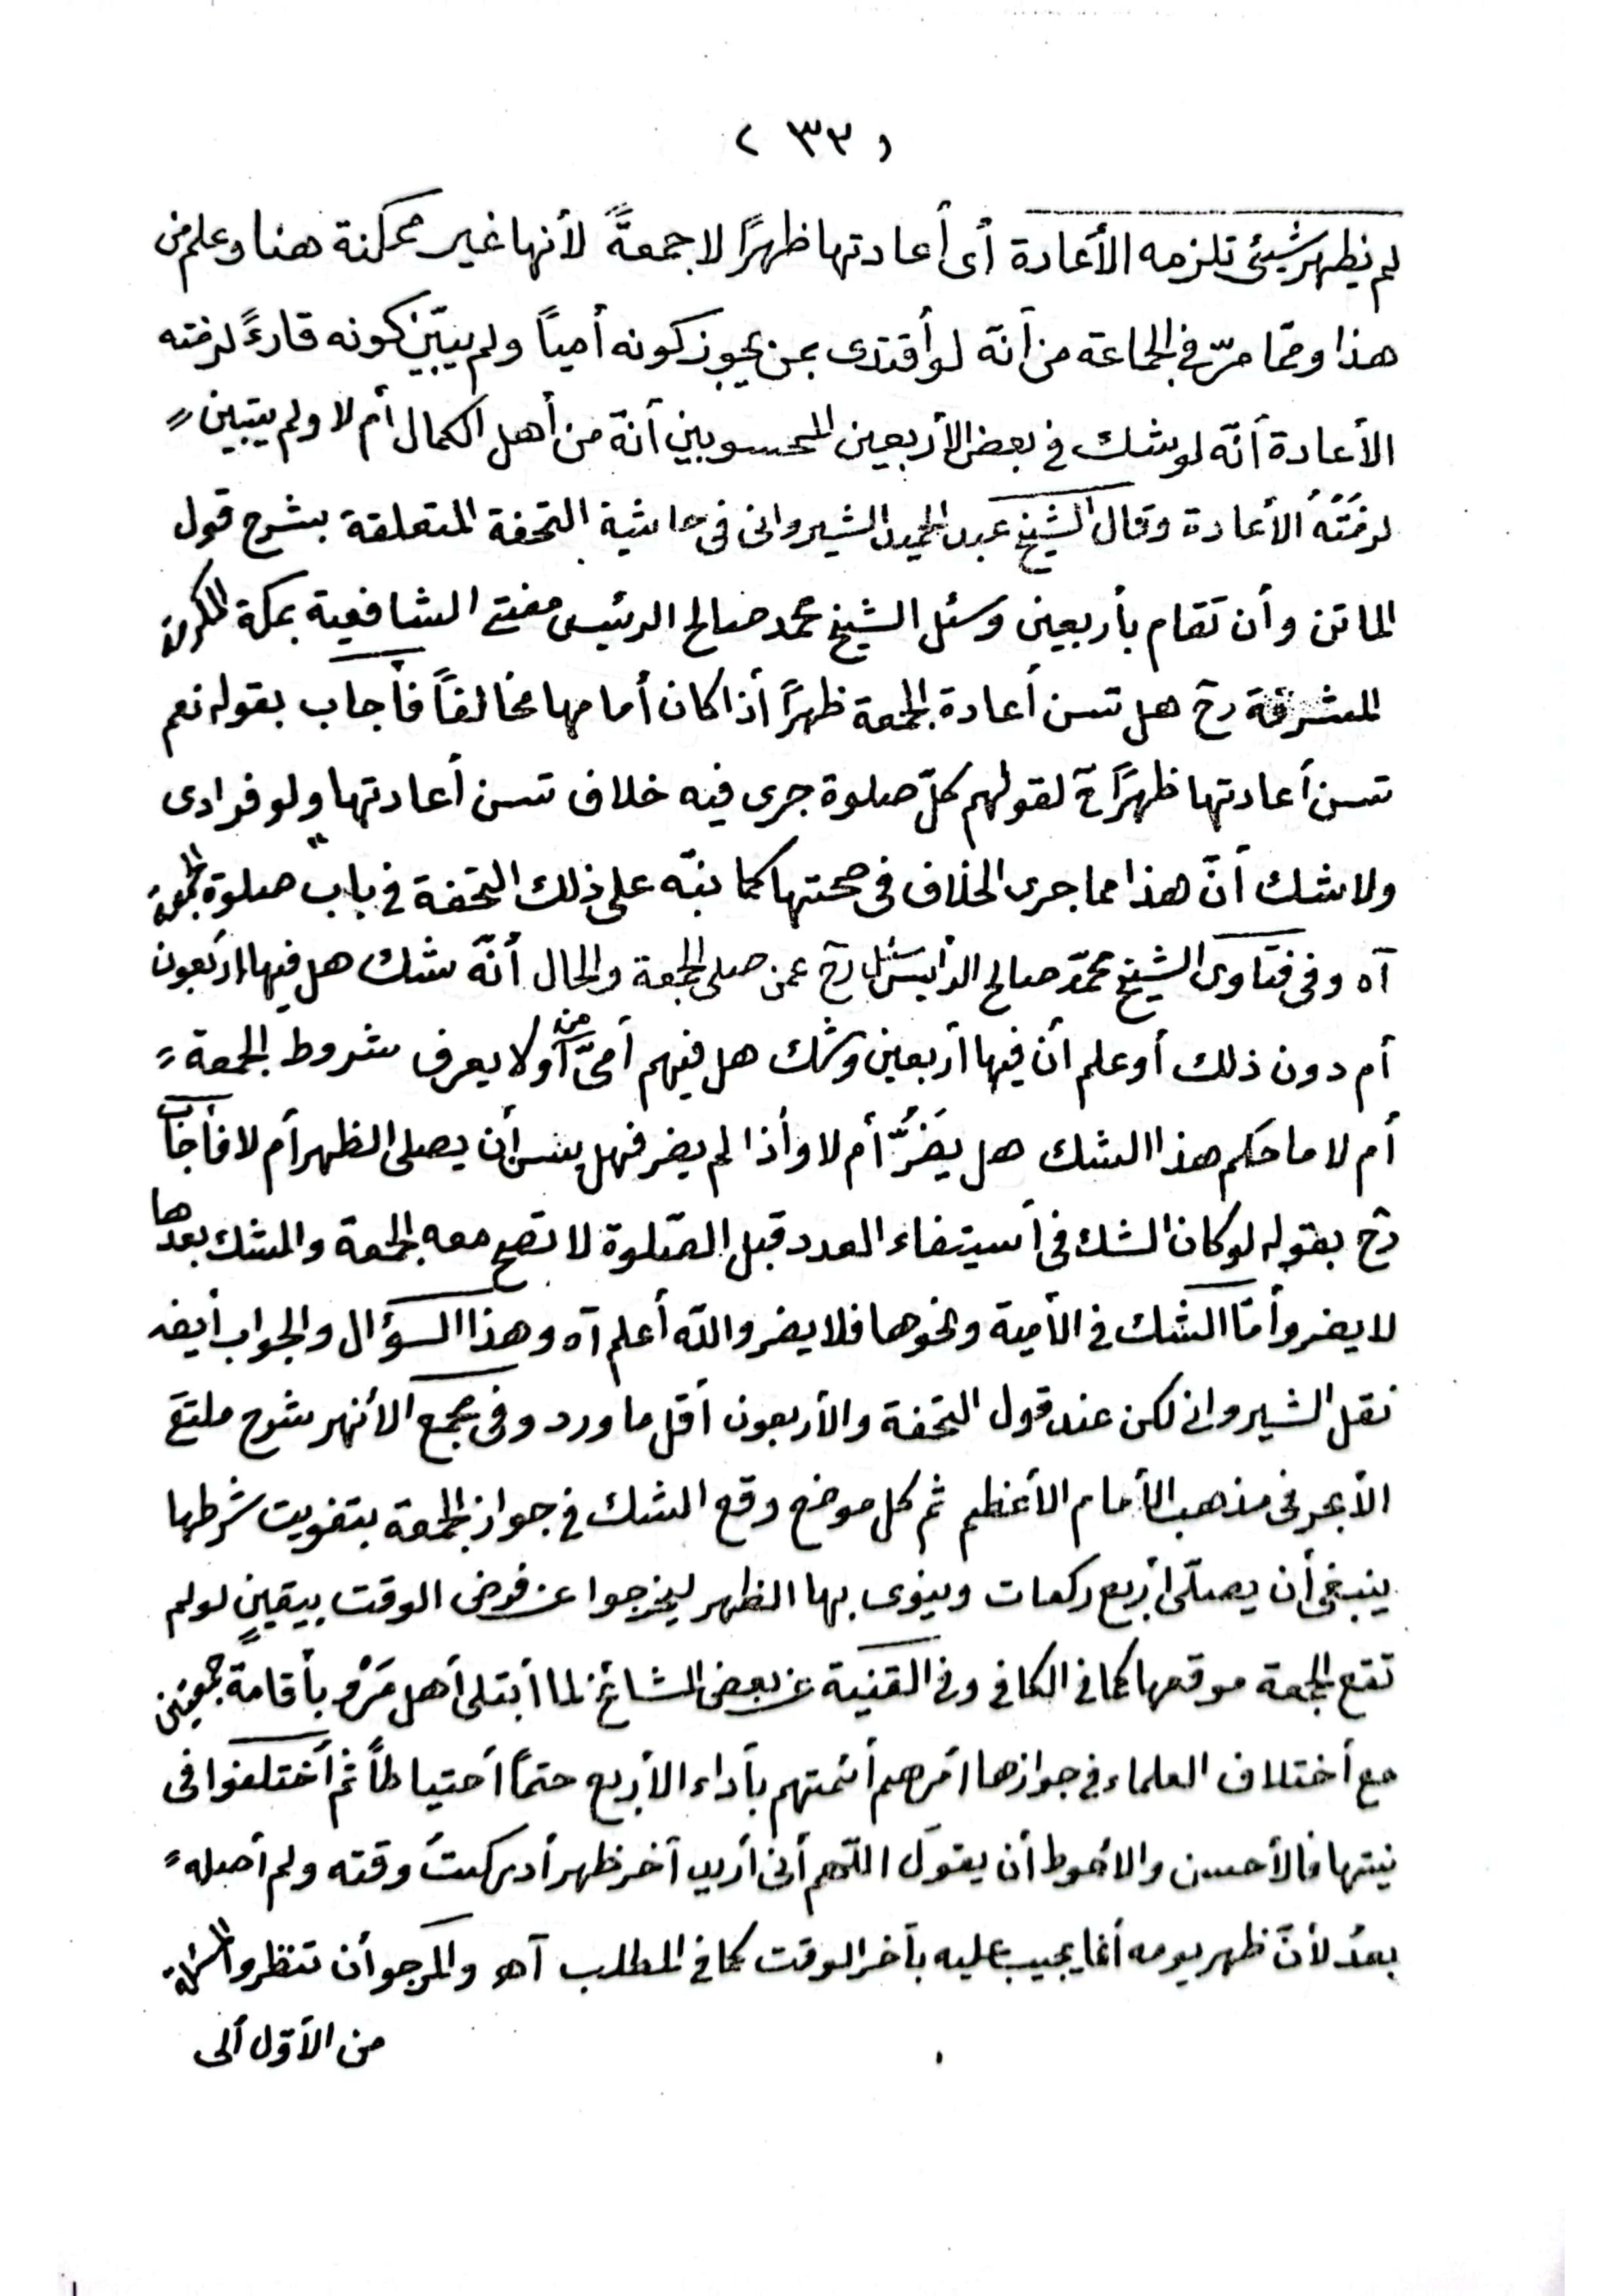 ( ٣٣ )
لم يظهر شيئ تلزمه الأعادة أى أعادتها ظهرًا لا جمعةً لأنها غير ممكنة هنا وعلم من
هذا وممّا مرّ في الجماعة من أنّه لو أقتدى بمن يجوز كونه أمياً ولم يبيّن كونه قارءً لزمته
الأعادة أنّه لو شك في بعض الأربعين المحسوبين أنّه من أهل الكمال أم لا ولم يتبين
لزمَتْهُ الأعادة وقال الشيخ عبد الحميد الشيروانى فى حاشية التحفة المتعلقة بشرح قول
الماتن وأن تقام بأربعين وسئل الشيخ محمد صالح الرئيس مفتى الشافعية بمكة المكرمة
المشرفة رح هل تسن أعادة الجمعة ظهرًا أذا كان أمامها مخالفاً فأجاب بقوله نعم
تسن أعادتها ظهرًا ح لقولهم كلّ صلوة جرى فيه خلاف تسن أعادتها ولو فرادى
ولا شك أنّ هذا مما جرى الخلاف فى صحتها كما نبّه على ذلك التحفة في باب صلوة الجمعة
آه وفى فتاوى الشيخ محمّد صالح الرأيس سئل رح عمن صلى الجمعة والحال أنّه شك هل فيها أربعون
أم دون ذلك أو علم أن فيها أربعين وشك هل فيهم أمىّ أو من لا يعرف شروط الجمعة
أم لا ما حكم هذا الشك هل يضُرُّ أم لا وأذا لم يضر فهل يسن أن يصلى الظهر أم لا فأجاب
رح بقوله لو كان الشك فى أستيفاء العدد قبل الصّلوة لا تصح معه الجمعة والشك بعدها
لا يضر وأمّا الشك في الأمية ونحوها فلا يضر والله أعلم آه وهذا السؤال والجواب أيضا
نقل الشيروانى لكن عند قول التحفة والأربعون أقل ما ورد وفى مجمع الأنهر شرح ملتقى
الأبحر فى مذهب الأمام الأعظم ثم كل موضع وقع الشك في جواز الجمعة بتفويت شرطها
ينبغى أن يصلّى أربع ركعات وينوى بها الظهر ليخرجوا عن فرض الوقت بيقينٍ لو لم
تقع الجمعة موقعها كما في الكافي وفى القنية عن بعض المشائخ لما أبتلى أهل مَرْو بأقامة جمعتين
مع أختلاف العلماء في جوازها أمرهم أئمتهم بأداء الأربع حتماً أحتياطاً ثم أختلفوا فى
نيتها فالأحسن والأحوط أن يقول اللّهم أنى أريد آخر ظهر أدركتُ وقته ولم أصله
بعدُ لأنّ ظهر يومه أنما يجب عليه بآخر الوقت كما في المطلب آهـ والمرجو أن تنظروا
من الأوّل ألى